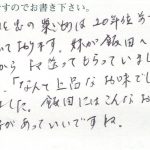 ですのでお書き下さい。
の栗 は20年位前
ております。妹が飯田へ
から 送ってもらっていまし
、「なんて上品なお味でし
した。飯田にはこんなお
があっていいですね。